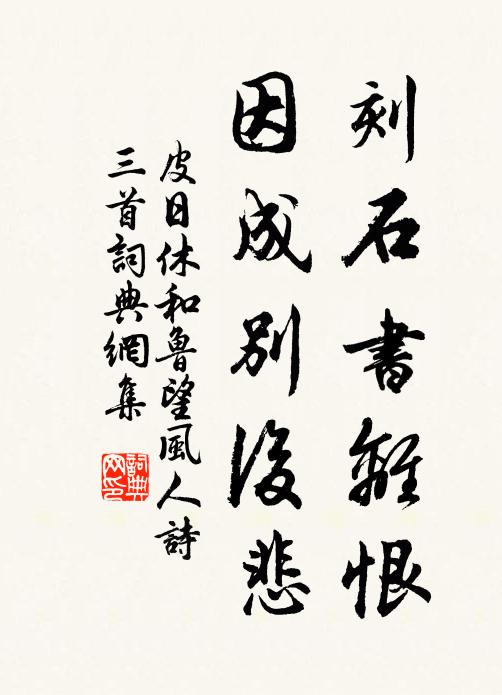 刻石書離恨
因成別後悲
皮日休和魯望風人詩
三首詞典網集
詞典
网印